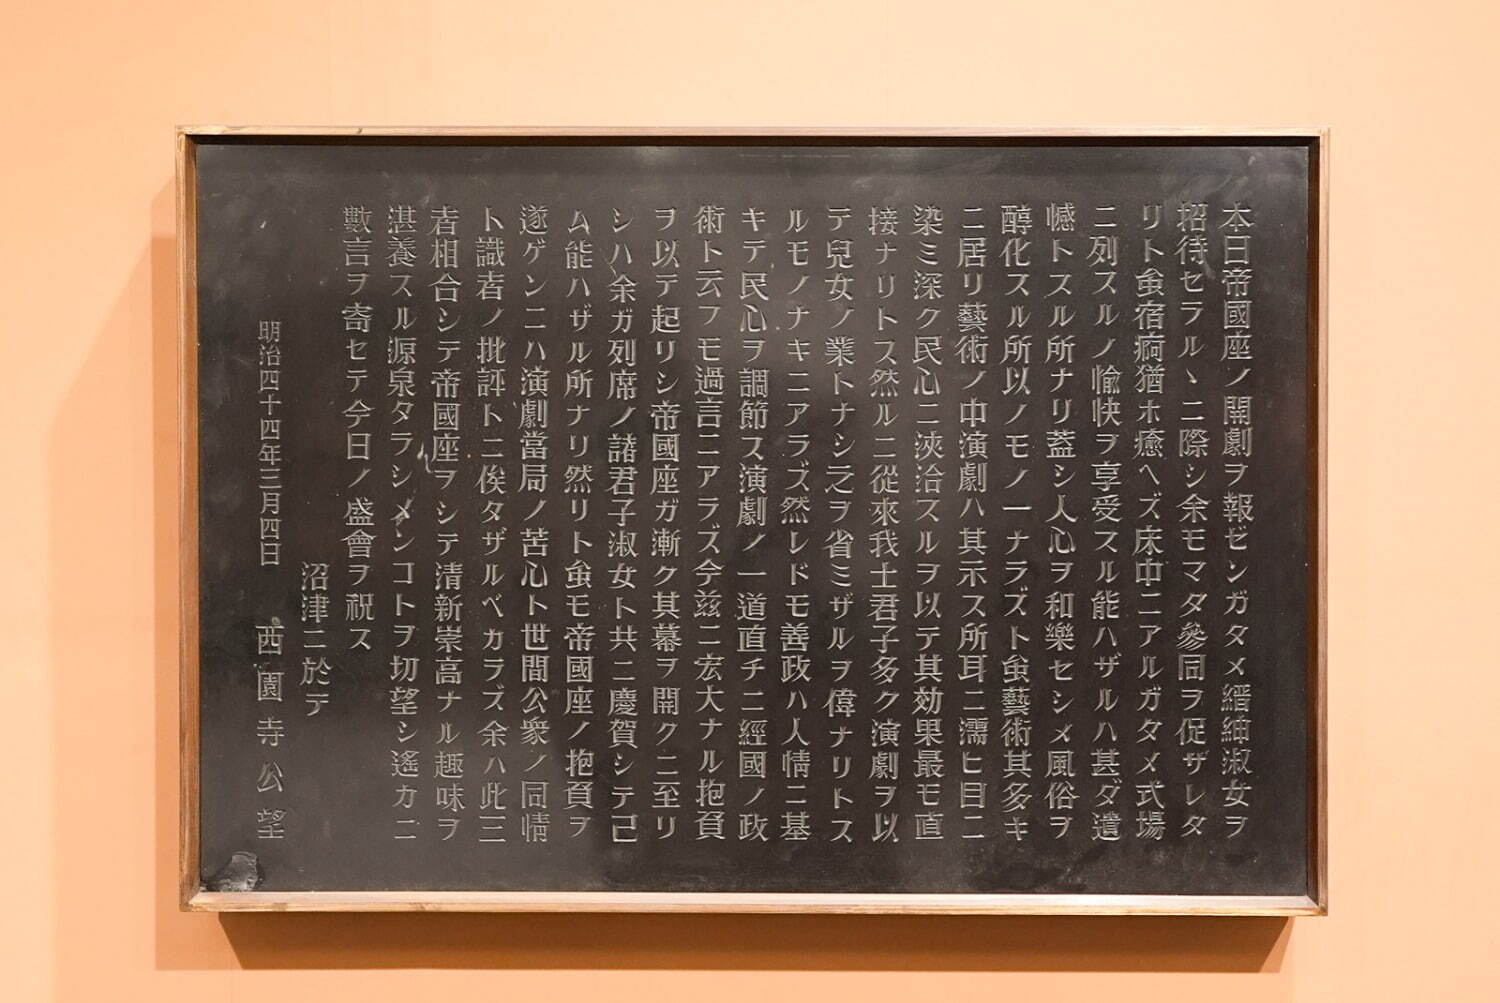 本日帝國座ノ開劇ヲ報ゼンガタメ縉紳淑女ヲ
招待セラルヽニ際シ余モマタ參同ヲ促ザレタ
リト䖝宿痾猶ホ癒ヘズ床中ニアルガタメ式場
ニ列スルノ愉快ヲ享受スル能ハザルハ甚ダ遺
憾トスル所ナリ蓋シ人心ヲ和樂セシメ風俗ヲ
醇化スル所以ノモノ一ナラズト䖝藝術其多キ
ニ居リ藝術ノ中演劇ハ其示ス所耳ニ濡ヒ目ニ
染ミ深ク民心ニ浹洽スルヲ以テ其効果最モ直
接ナリトス然ルニ從來我士君子多ク演劇ヲ以
テ兒女ノ業トナシ之ヲ省ミザルヲ偉ナリトス
ルモノナキニアラズ然レドモ善政ハ人情ニ基
キテ民心ヲ調節ス演劇ノ一道直チニ經國ノ政
術ト云フモ過言ニアラズ今玆ニ宏大ナル抱負
ヲ以テ起リシ帝國座ガ漸ク其幕ヲ開クニ至リ
シハ余ガ列席ノ諸君子淑女ト共ニ慶賀シテ己
ム能ハザル所ナリ然リト䖝モ帝國座ノ抱負ヲ
遂ゲンニハ演劇當局ノ苦心ト世間公衆ノ同情
ト識者ノ批評トニ俟タザルベカラズ余ハ此三
者相合シテ帝國座ヲシテ清新崇高ナル趣味ヲ
湛養スル源泉タラシメンコトヲ切望シ遙カニ
數言ヲ寄セテ今日ノ盛會ヲ祝ス
沼津ニ於テ
明治四十四年三月四日 西園寺公望